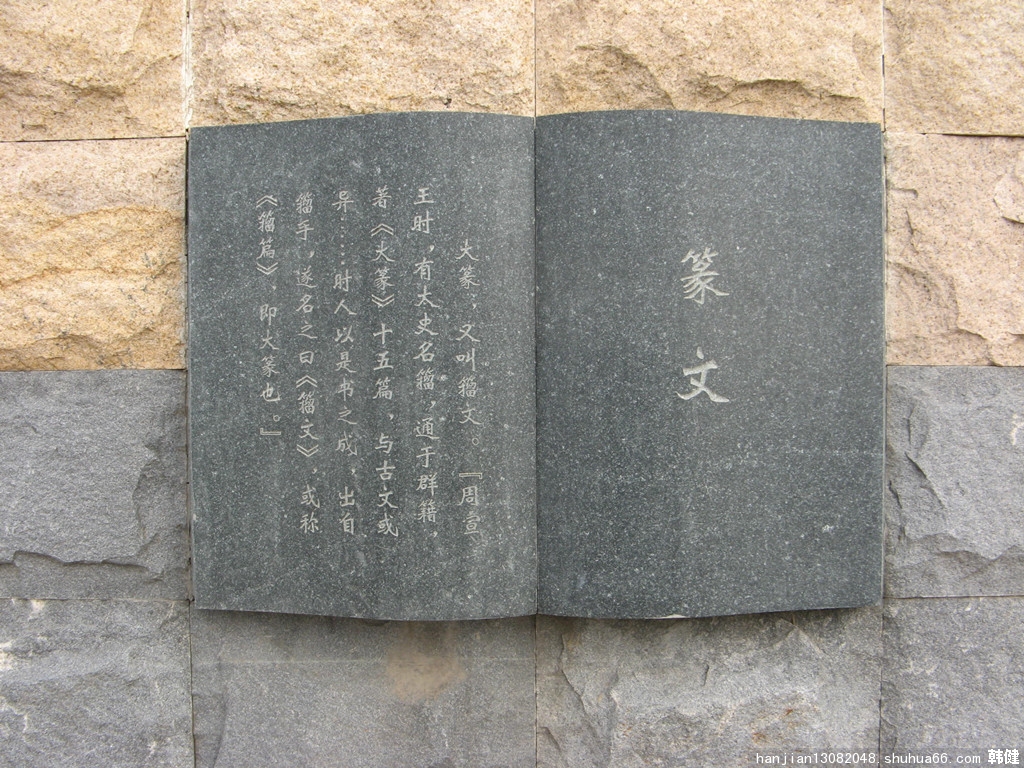 篆文
大篆，又叫籀文。『周宣
王时，有太史名籀，通于群籍，
著《大篆》十五篇，与古文或
异……时人以是书之成，出自
籀手，遂名之曰《籀文》，或称
《籀篇》，即大篆也。』
hanjian13082048 shuhua66.com 韩健